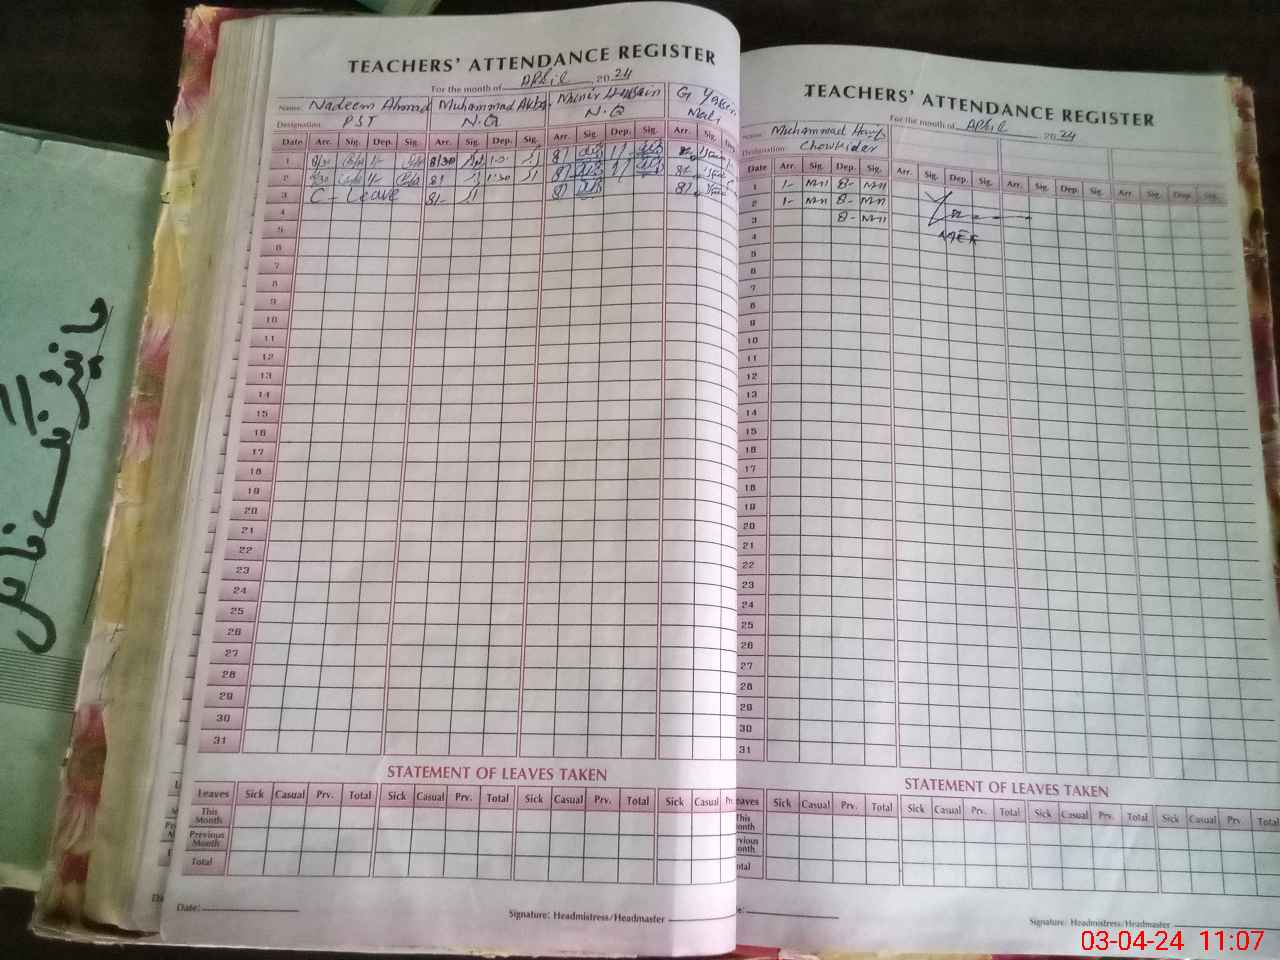 TEACHERS' ATTENDANCE REGISTER
For the month of April 2024
Name Nadeem Ahmad Muhammad Akbar Munir Hussain G Yasin
Designation PST N.Q N.Q Mali
Date Arr. Sig. Dep. Sig. Arr. Sig. Dep. Sig. Arr. Sig. Dep. Sig. Arr. Sig. Dep
1 8/30 1/- 8/30 1:0 8/ 1/ 8/
2 8/30 1/- 8/ 1:30 8/ 1/ 8/
3 C - Leave 8/- 8/ 8/
4
5
6
7
8
9
10
11
12
13
14
15
16
17
18
19
20
21
22
23
24
25
26
27
28
29
30
31
STATEMENT OF LEAVES TAKEN
Leaves Sick Casual Prv. Total Sick Casual Prv. Total Sick Casual Prv. Total Sick Casual
This Month
Previous Month
Total
Date:
Signature: Headmistress/Headmaster
TEACHERS' ATTENDANCE REGISTER
For the month of April 2024
Name Muhammad Hanif
Designation Chowkidar
Date Arr. Sig. Dep. Sig. Arr. Sig. Dep. Sig. Arr. Sig. Dep. Sig. Arr. Sig. Dep. Sig.
1 1- 8-
2 1- 8-
3 8-
4 AEE
5
6
7
8
9
10
11
12
13
14
15
16
17
18
19
20
21
22
23
24
25
26
27
28
29
30
31
STATEMENT OF LEAVES TAKEN
eaves Sick Casual Prv. Total Sick Casual Prv. Total Sick Casual Prv. Total Sick Casual Prv Total
This onth
vious onth
otal
e:
Signature: Headmistress/Headmaster
03-04-24 11:07